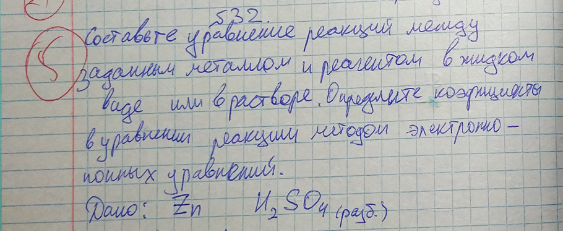 532.
5 Составьте уравнение реакций между
заданным металлом и реагентом в жидком
виде или в растворе. Определите коэфициенты
в уравнении реакции методом электронно-
ионных уравнений.
Дано: Zn H₂SO₄ (разб.)